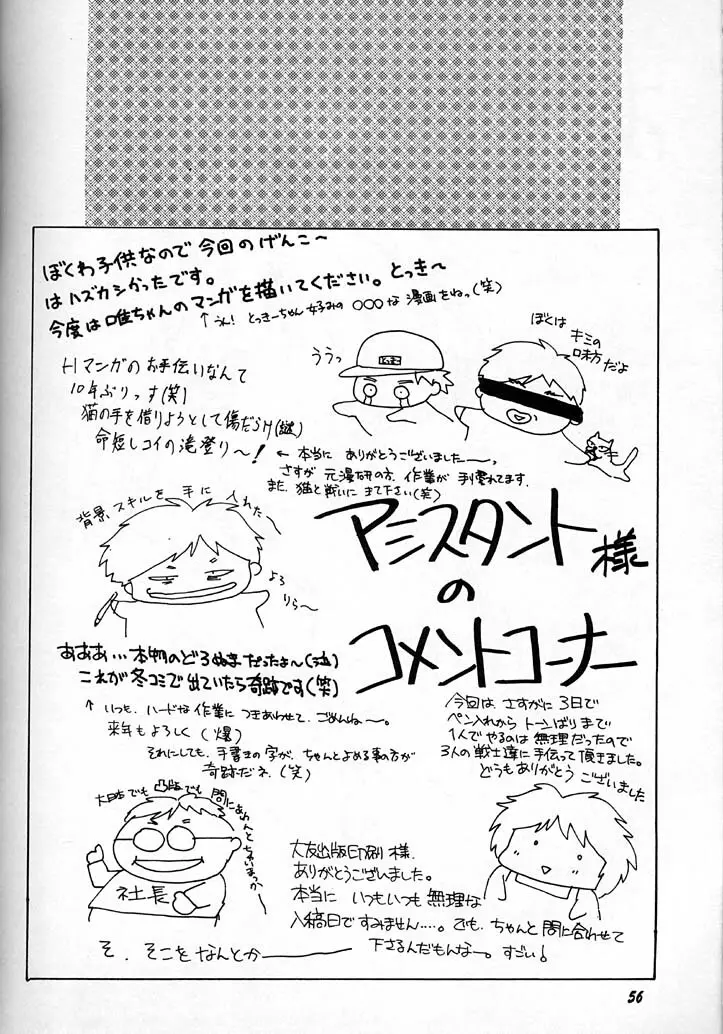 ぼくわ子供なので今回のげんこ〜
はハズカシかったです。
今度は唯ちゃんのマンガを描いてください。とっき〜
↑うん!とっきーちゃん好みの○○○な漫画をねっ(笑)
Hマンガのお手伝いなんて
10年ぶりっす(笑)
猫の手を借りようとして傷だらけ(謎)
命短しコイの滝登り〜!
ううっ
ぼくは
キミの
味方だよ
←本当にありがとうございましたーっ、
さすが元漫研の方、作業が手慣れてます。
また、猫と戦いにきて下さい(笑)
背景スキルを手に入れた〜
よろ
りら〜
アシスタント様
の
コメントコーナー
あああ…本物のどろぬまだったよ〜(泣)
これが冬コミで出ていたら奇跡です(笑)
↑いつも、ハードな作業につきあわせて、ごめんね〜。
来年もよろしく(爆)
それにしても、手書きの字が、ちゃんとよめる事の方が
奇跡だネ(笑)
今回は、さすがに3日で
ペン入れからトーンばりまで
1人でやるのは無理だったので
3人の戦士達に手伝って頂きました。
どうもありがとうございました
大日本でも凸版でも間にあわんと
社長
大友出版印刷様、
ありがとうございました。
本当にいつもいつも無理な
入稿日ですみません….。でも、ちゃんと間に合わせて
下さるんだもんなー。すごい!
そ、そこをなんとかー
56